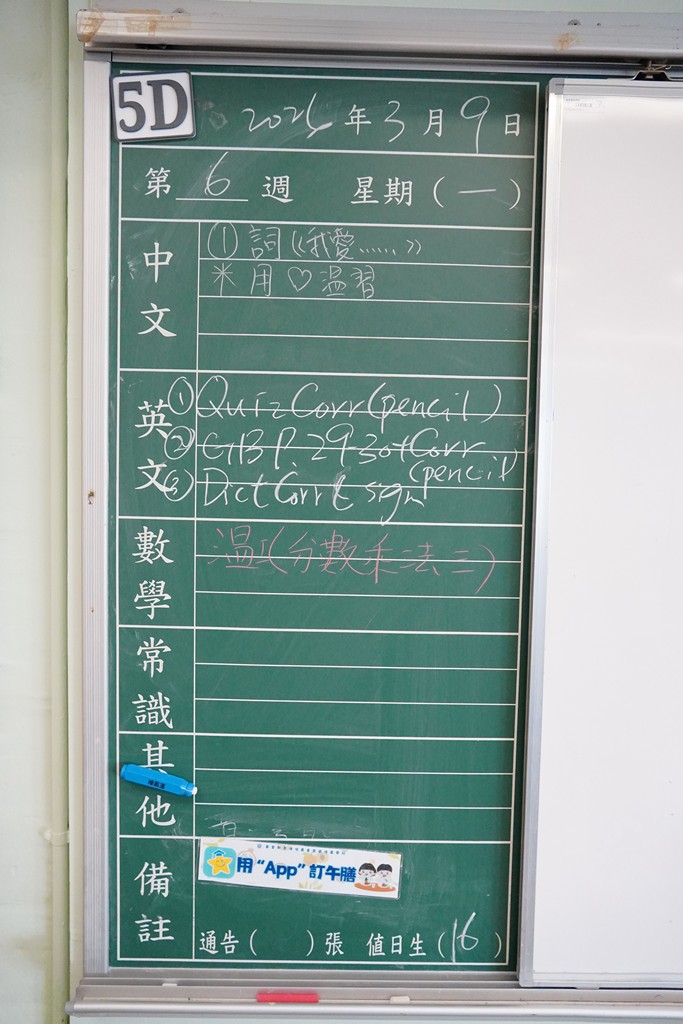 5D
2026年3月9日
第6週 星期(一)
中文
① 詞《我愛......》
* 用♡温習
英文
① Quiz Corr (pencil)
② GB P.29 30+Corr
(pencil)
③ Dict Corr & sign
數學
温工(分數乘法三)
常識
其他
備註
用“App”訂午膳
通告( )張 值日生(16)